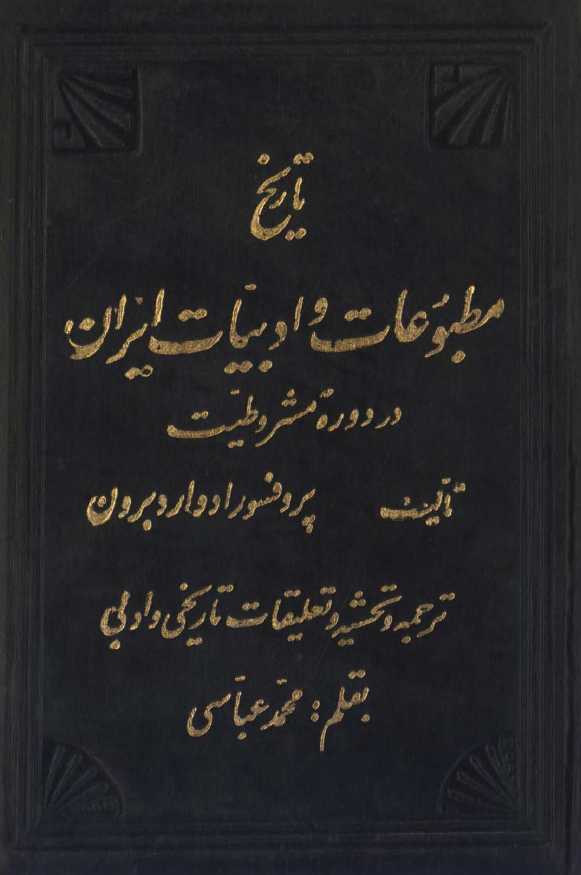 تاریخ
مطبوعات و ادبیّات ایران
در دورهٔ مشروطیّت
تألیف پروفسور ادوارد برون
ترجمه و تحشیه و تعلیقات تاریخی و ادبی
بقلم : محمّد عبّاسی